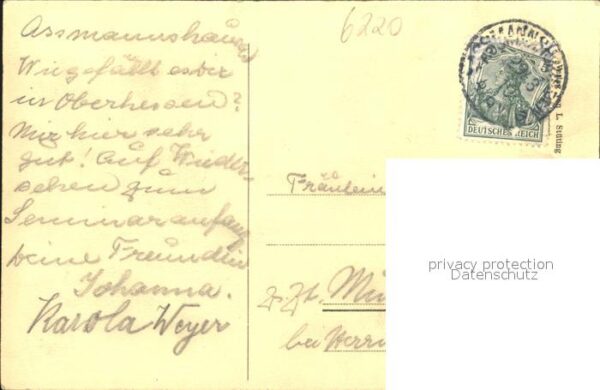 6220
Assmannshausen
Wie gefällt es dir
in Oberhessen?
Mir hier sehr
gut! Auf Wieder-
sehen zum
Seminaranfang
deine Freundin
Johanna.
Karola Weyer
DEUTSCHES REICH
Fräulein
z. Zt.
bei Herrn
privacy protection
Datenschutz